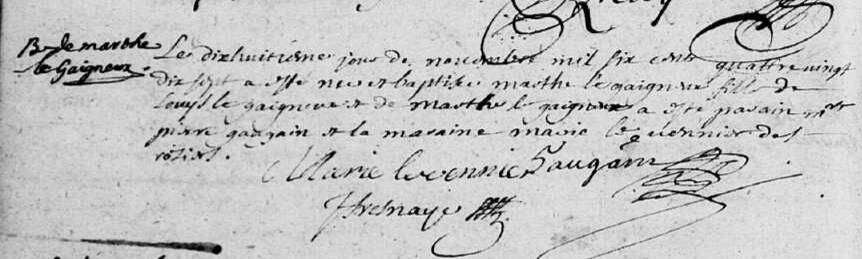 B de marthe
le Gaigneux
Le dixhuitieme jour de novembre mil six cents quattre vingt
dix sept a esté nee et baptisee marthe le gaigneux fille de
Louys le gaigneux et de marthe le gaigneux a esté parain mre
pierre gaugain et la maraine marie le des
Marie Gaugain
Fresnaye